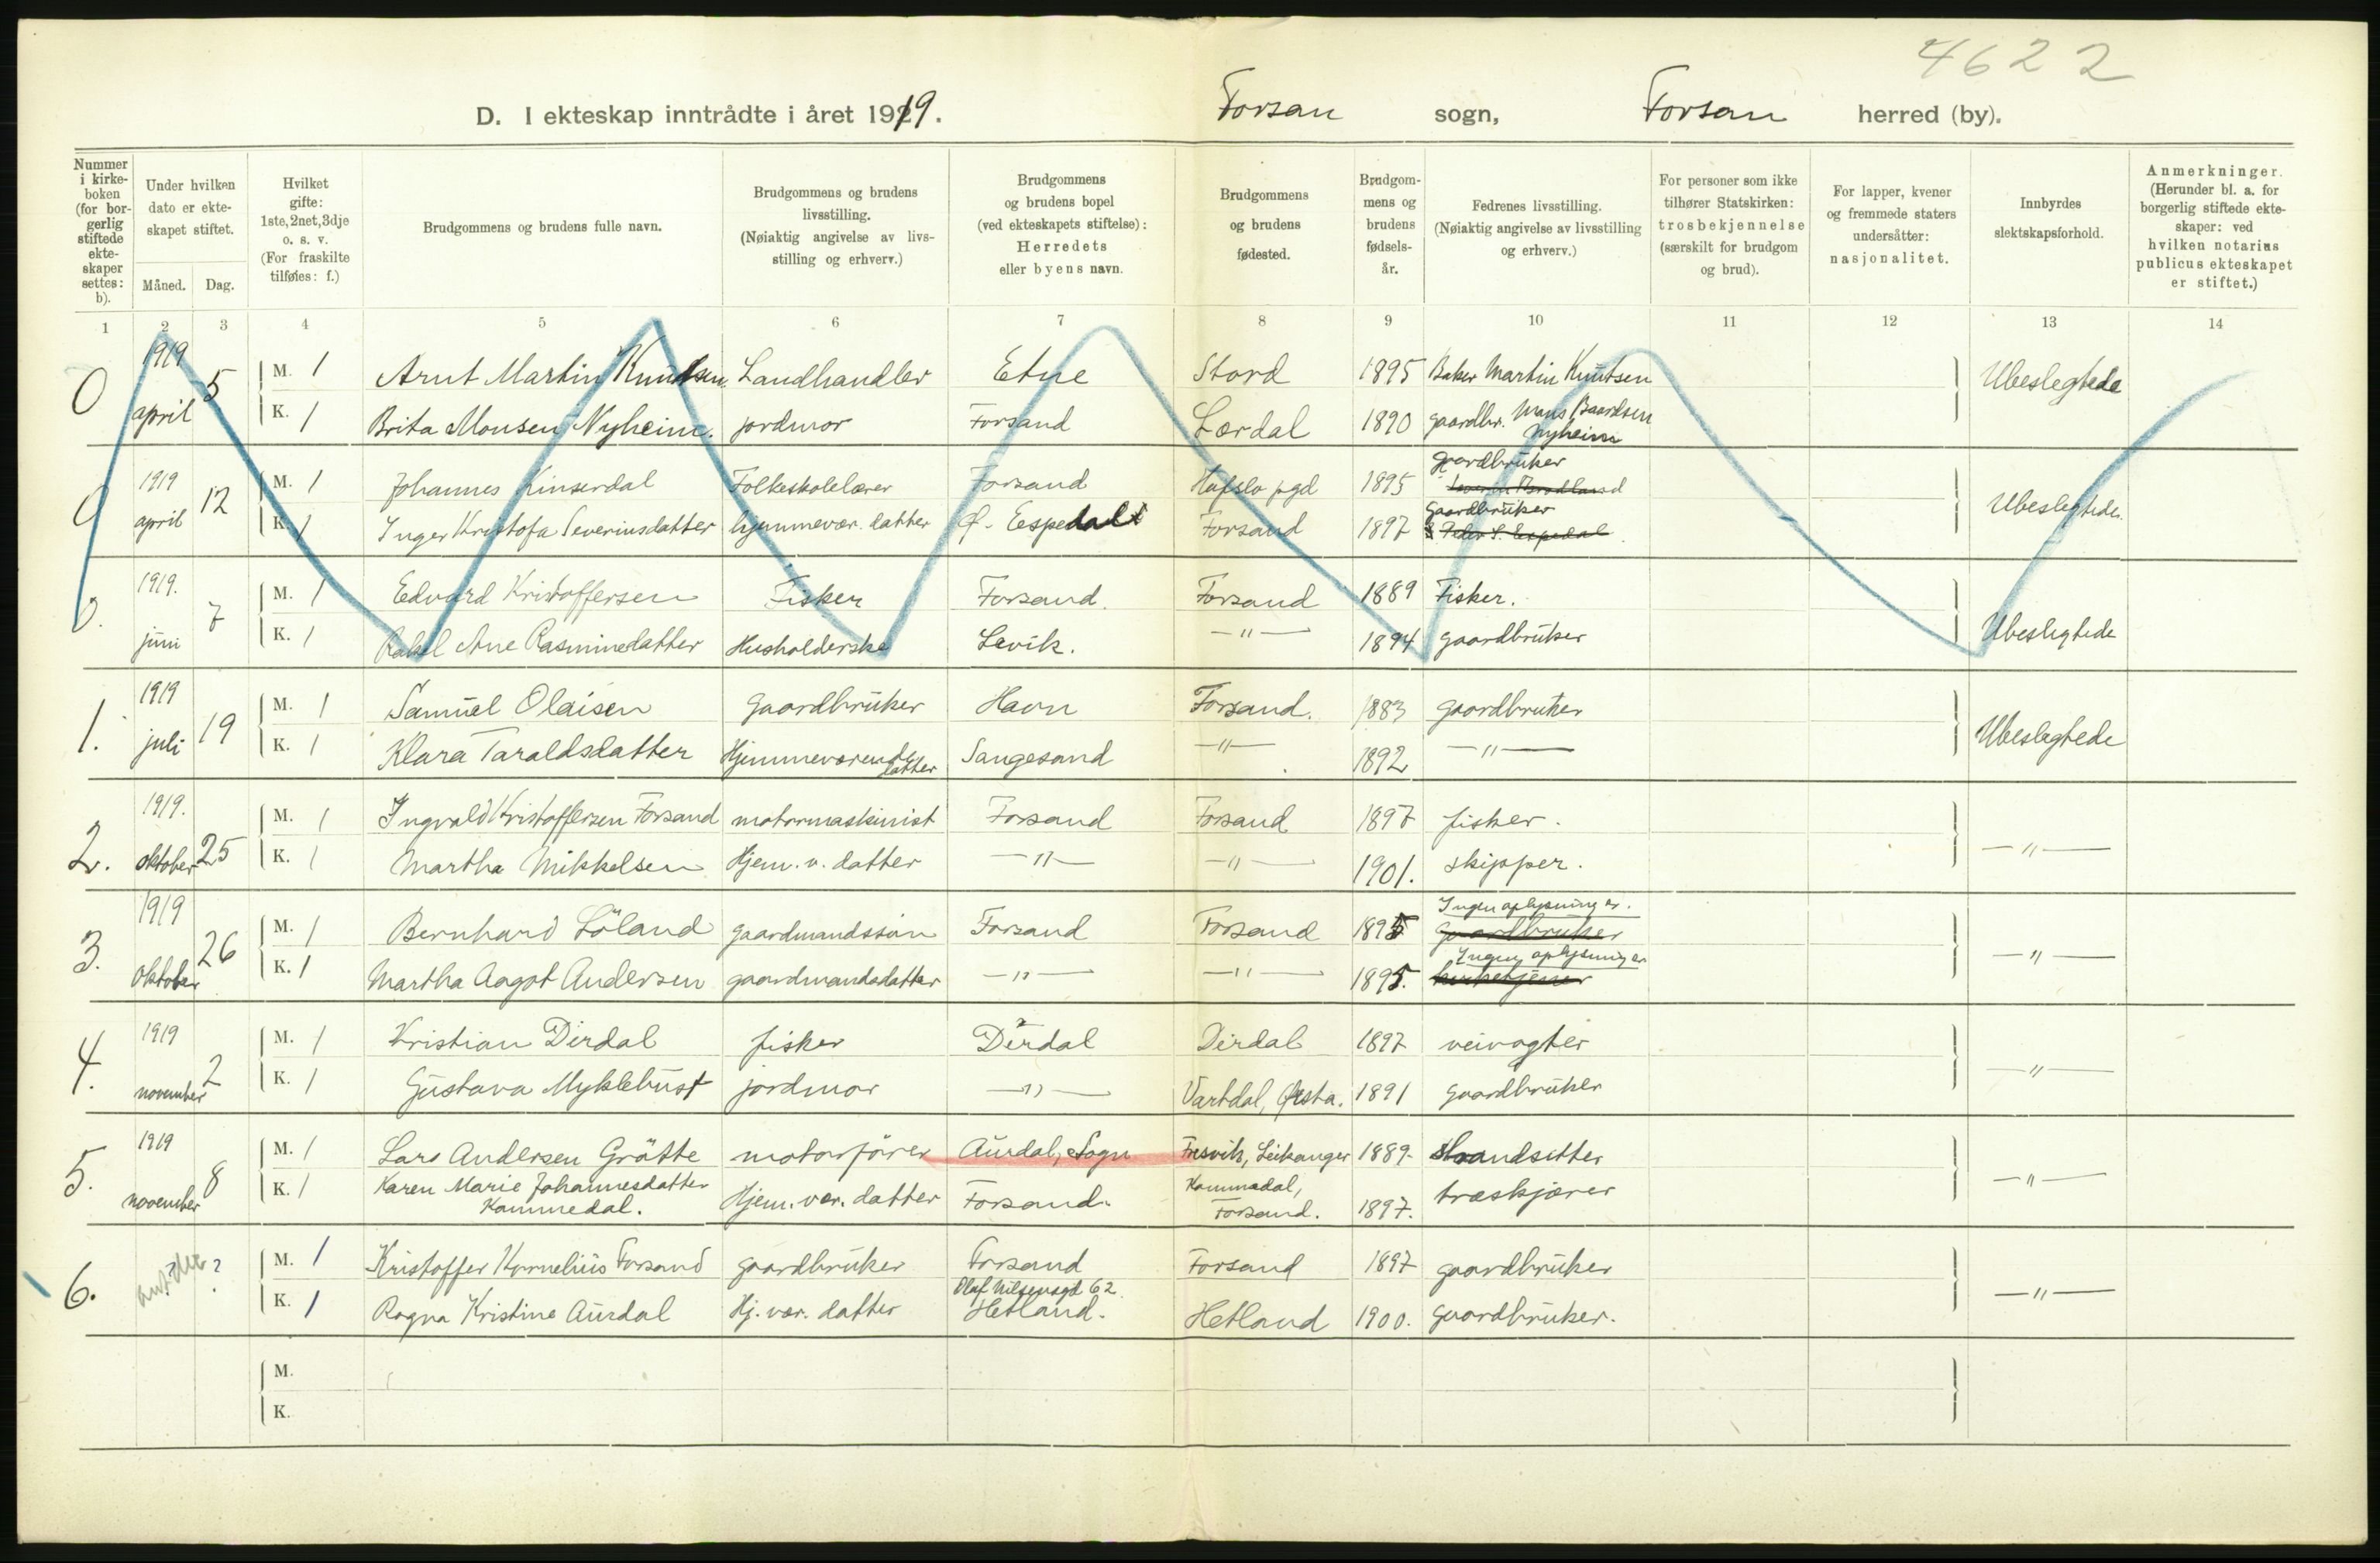 4622
D. I ekteskap inntrådte i året 1919. Forsan sogn, Forsan herred (by).
Nummer i kirkeboken (for borgerlig stiftede ekteskaper settes: b).
Under hvilken dato er ekteskapet stiftet.
Måned. Dag.
Hvilket gifte: 1ste, 2net, 3dje o. s. v. (For fraskilte tilføies: f.)
Brudgommens og brudens fulle navn.
Brudgommens og brudens livsstilling. (Nøiaktig angivelse av livsstilling og erhverv.)
Brudgommens og brudens bopel (ved ekteskapets stiftelse): Herredets eller byens navn.
Brudgommens og brudens fødested.
Brudgommens og brudens fødselsår.
Fedrenes livsstilling. (Nøiaktig angivelse av livsstilling og erhverv.)
For personer som ikke tilhører Statskirken: trosbekjennelse (særskilt for brudgom og brud).
For lapper, kvener og fremmede staters undersåtter: nasjonalitet.
Innbyrdes slektskapsforhold.
Anmerkninger. (Herunder bl. a. for borgerlig stiftede ekteskaper: ved hvilken notarius publicus ekteskapet er stiftet.)
1 2 3 4 5 6 7 8 9 10 11 12 13 14
0 1919 april 5 M. 1 Arnt Martin Knudsen Landhandler Etne Stord 1895 Baker Martin Knutsen Ubeslegtede
K. 1 Brita Monsen Nyheim. jordmor Forsand Lærdal 1890 gaardbr. Mons Baardsen Nyheim
0 1919 april 12 M. 1 Johannes Kinserdal Folkeskolelærer Forsand Hafslo pgd 1895 Gaardbruker Ubeslegtede.
K. 1 Inger Kristofa Severinsdatter hjemmevær. datter Ø. Eespedal Forsand 1897 Gaardbruker Peder S. Espedal
0. 1919. juni 7 M. 1 Edvard Kristoffersen Fisker Forsand. Forsand 1889 Fisker. Ubeslegtede
K. 1 Rakel Ane Rasminedatter Husholderske Levik. —"— 1894 gaardbruker
1. 1919 juli 19 M. 1 Samuel Olaisen gaardbruker Havn Forsand. 1883 gaardbruker Ubeslegtede
K. 1 Klara Taraldsdatter Hjemmeværende datter Sangesand —"— 1892 —"—
2. 1919. oktober 25 M. 1 Ingvald Kristoffersen Forsand motormaskinist Forsand Forsand 1897 fisker. —"—
K. 1 Martha Mikkelsen Hjem. v. datter —"— —"— 1901. skipper.
3. 1919 Oktober 26 M. 1 Bernhard Löland gaardmandssøn Forsand Forsand 1895 Ingen oplysninger. Gaardbruker —"—
K. 1 Martha Aagot Andersen gaardmandsdatter —"— —"— 1895. Ingen oplysninger
4. 1919 november 2 M. 1 Kristian Dirdal fisker Dirdal Dirdal 1897 veivogter —"—
K. 1 Gustava Myklebust jordmor —"— Vartdal, Ørsta. 1891 gaardbruker
5. 1919 november 8 M. 1 Lars Andersen Gråtte motorfører Aurdal, Sogn Fresvik, Leikanger 1889. Strandsitter —"—
K. 1 Karen Marie Johannesdatter Kommedal. Hjem. vær. datter Forsand. Kommedal, Forsand. 1897. træskjærer
6. ? ? M. 1 Kristoffer Kornelius Forsand gaardbruker Forsand Forsand 1897 gaardbruker —"—
K. 1 Ragna Kristine Aurdal Hj. vær. datter Olaf Nilsensgt 62. Hetland. Hetland 1900. gaardbruker.
M.
K.